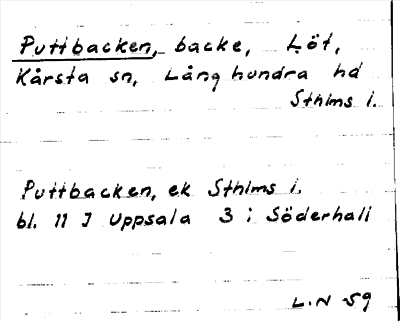 Puttbacken, backe, Löt,
Kårsta sn, Långhundra hd
Sthlms l.
Puttbacken, ek Sthlms l.
bl. 11 I Uppsala 3 i Söderhall
L.N 59